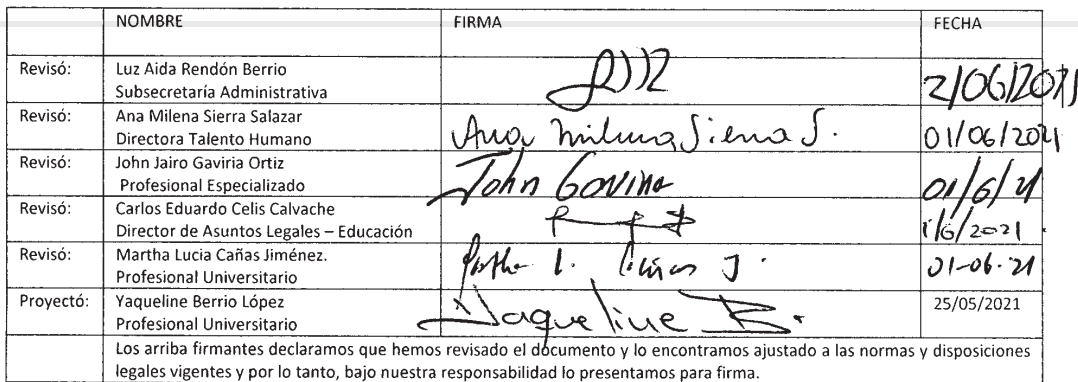 NOMBRE FIRMA FECHA
Revisó: Luz Aida Rendón Berrio
Subsecretaría Administrativa 2/06/2021
Revisó: Ana Milena Sierra Salazar
Directora Talento Humano Ana Milena Sierra S. 01/06/2021
Revisó: John Jairo Gaviria Ortiz
Profesional Especializado John Gaviria 01/6/21
Revisó: Carlos Eduardo Celis Calvache
Director de Asuntos Legales – Educación 1/6/2021
Revisó: Martha Lucia Cañas Jiménez.
Profesional Universitario Martha L. Cañas J. 01-06-21
Proyectó: Yaqueline Berrio López 25/05/2021
Profesional Universitario Yaqueline B.
Los arriba firmantes declaramos que hemos revisado el documento y lo encontramos ajustado a las normas y disposiciones
legales vigentes y por lo tanto, bajo nuestra responsabilidad lo presentamos para firma.